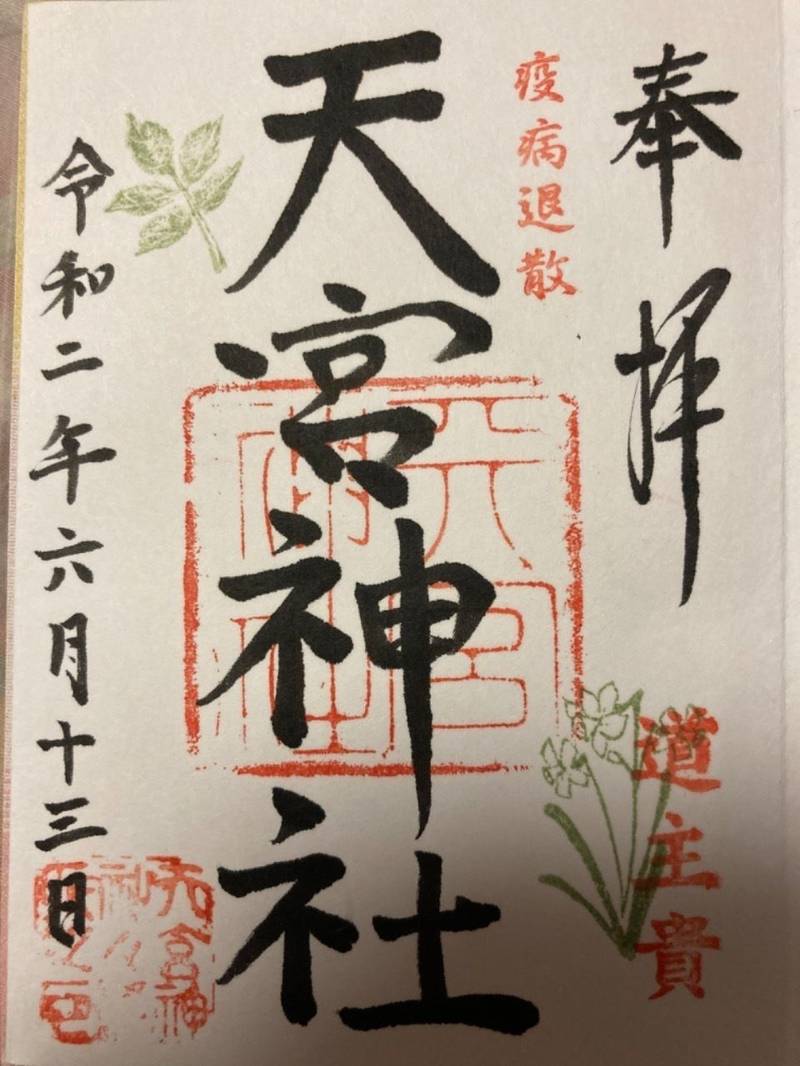 奉拝
疫病退散
道主貴
天宮神社
天宮神社
令和二年六月十三日